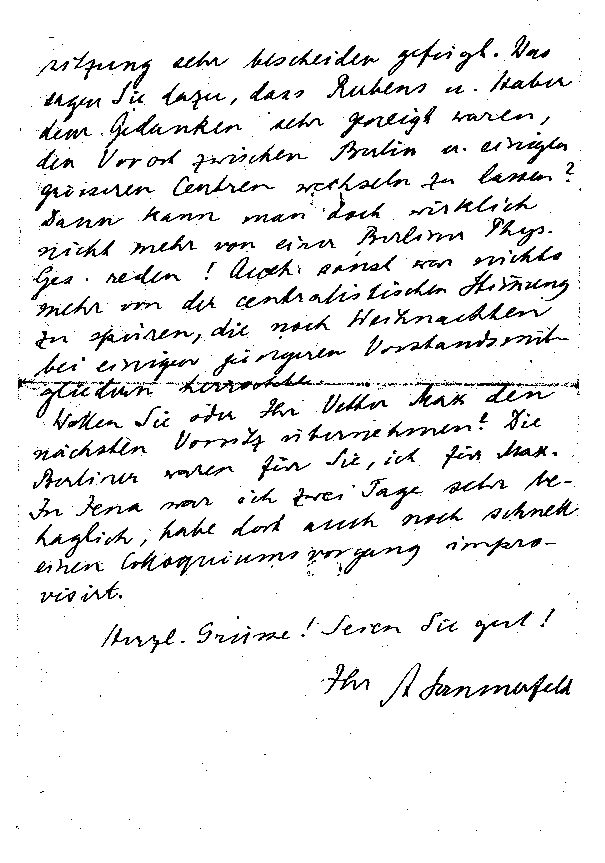 sitzung sehr bescheiden gefügt. Was
sagen Sie dazu, dass Rubens u. Haber
dem Gedanken sehr geneigt waren,
den Vorort zwischen Berlin u. einigen
grösseren Centren wechseln zu lassen?
Dann kann man doch wirklich
nicht mehr von einer Berliner Phys.
Ges. reden! Auch sonst war nichts
mehr von der centralistischen Stimmung
zu spüren, die noch Weihnachten
bei einigen jüngeren Vorstandsmit-
gliedern herrschte.
Wollen Sie oder Ihr Vetter Max den
nächsten Vorsitz übernehmen? Die
Berliner waren für Sie, ich für Max.
In Jena war ich zwei Tage sehr be-
haglich, habe dort auch noch schnell
einen Colloquiumsvorgang impro-
visirt.
Herzl. Grüsse! Seien Sie gut!
Ihr A Sommerfeld